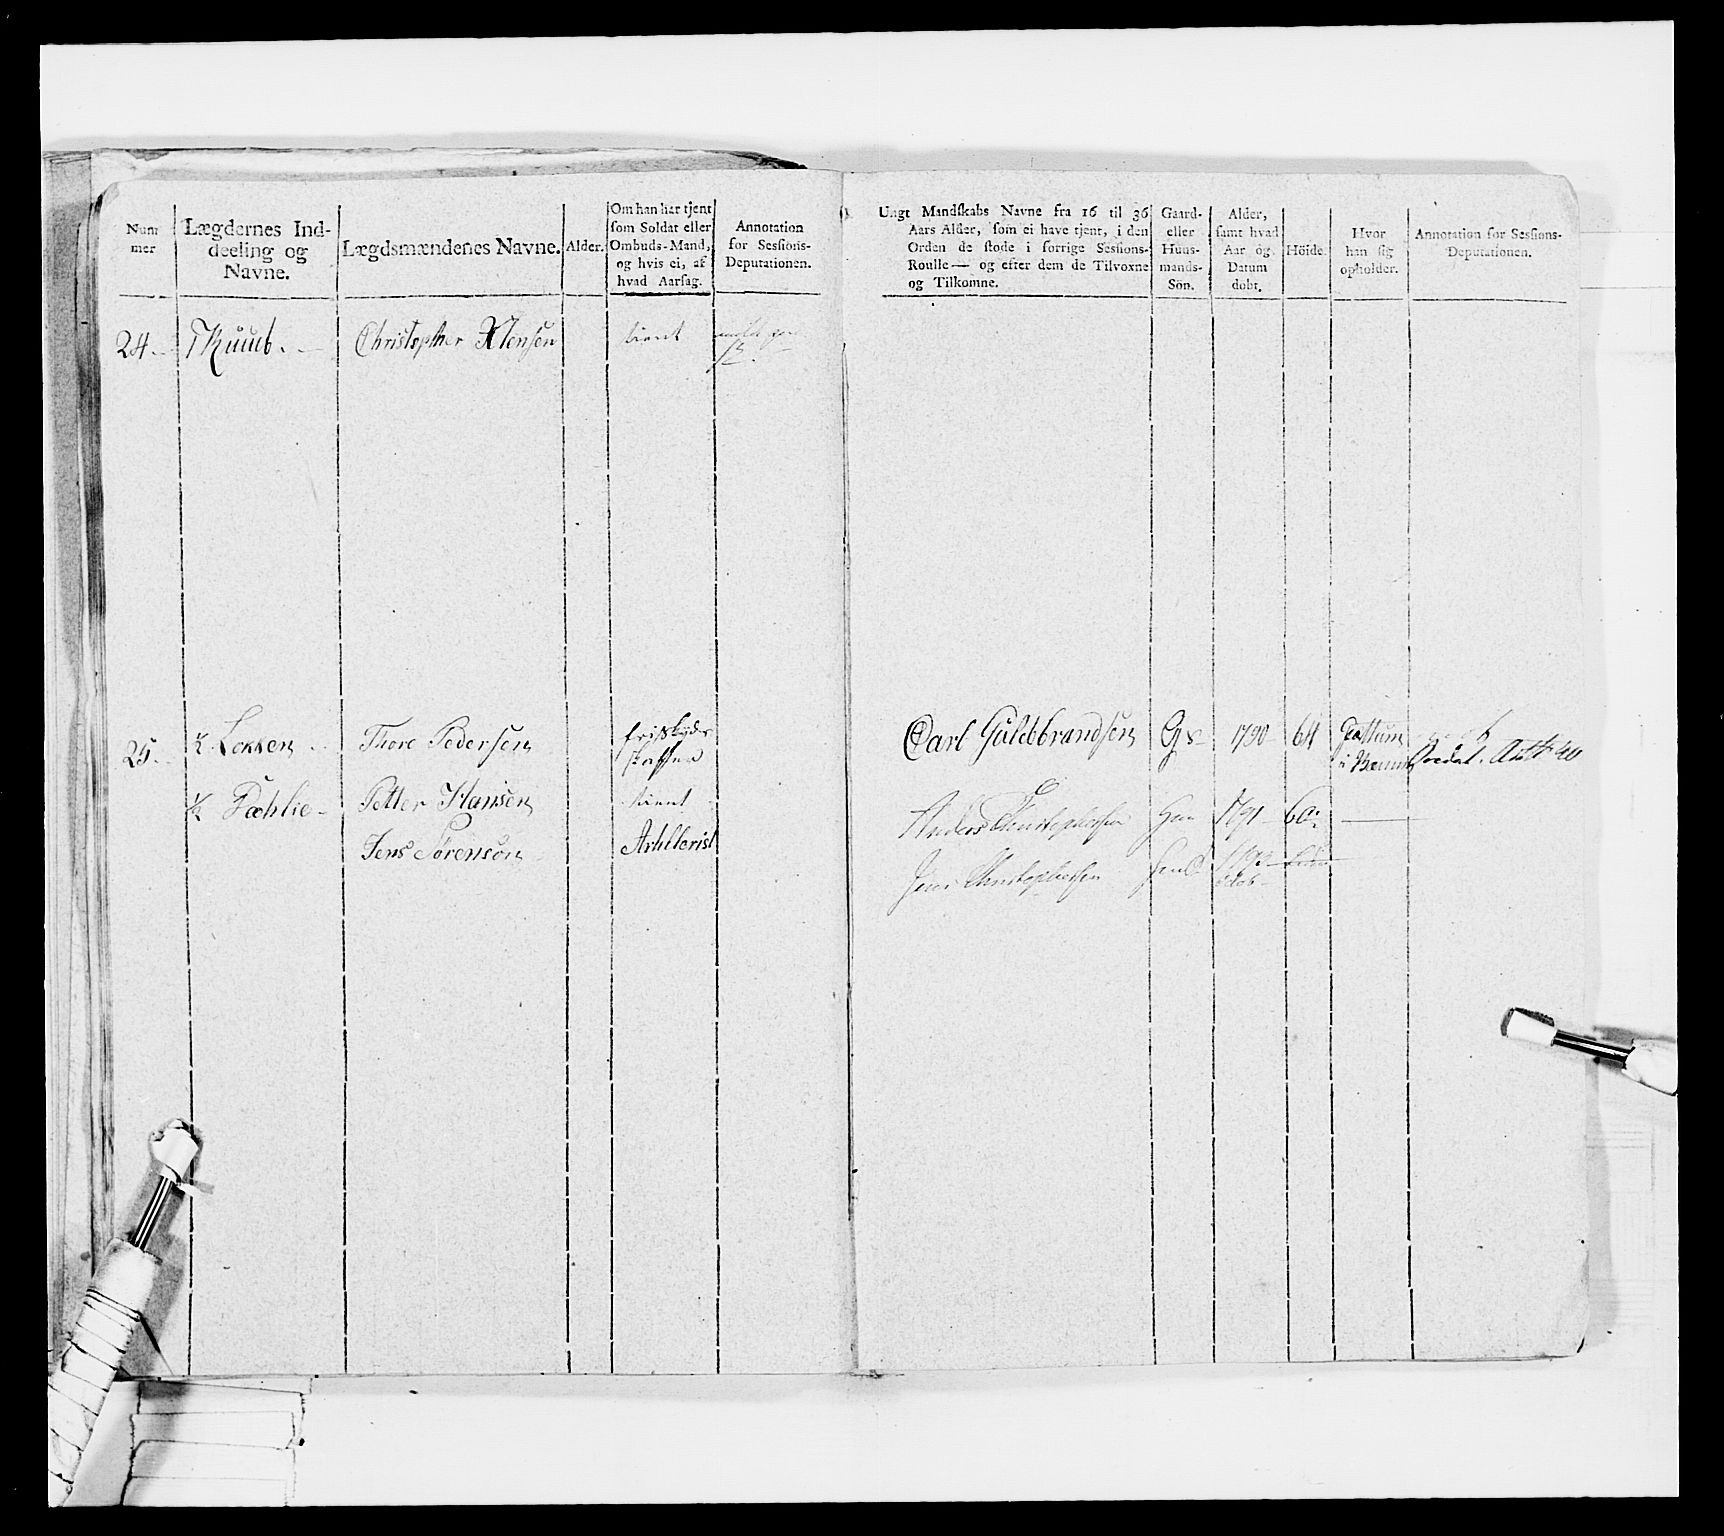 Num
mer
Lægdernes Ind-
deeling og
Navne.
Lægdsmændenes Navne.
Alder.
Om han har tjent
som Soldat eller
Ombuds-Mand,
og hvis ei, af
hvad Aarsag.
Annotation
for Sessions-
Deputationen.
24.
Christopher
tient
25.
½ Løkken
Thore Pedersen
½ Dæhlie
Petter Hansen
tient
Jens Sørensøn
Artillerist
Ungt Mandskabs Navne fra 16 til 36
Aars Alder, som ei have tjent, i den
Orden de stode i forrige Sessions-
Roulle — og efter dem de Tilvoxne
og Tilkomne.
Gaard-
eller
Huus-
mands-
Sön.
Alder,
samt hvad
Aar og
Datum
dobt.
Höide.
Hvor
han sig
opholder.
Annotation for Sessions-
Deputationen.
Carl Guldbrandsen Gs 1790 64
Anders Christophersen 1791
Jens Christophersen